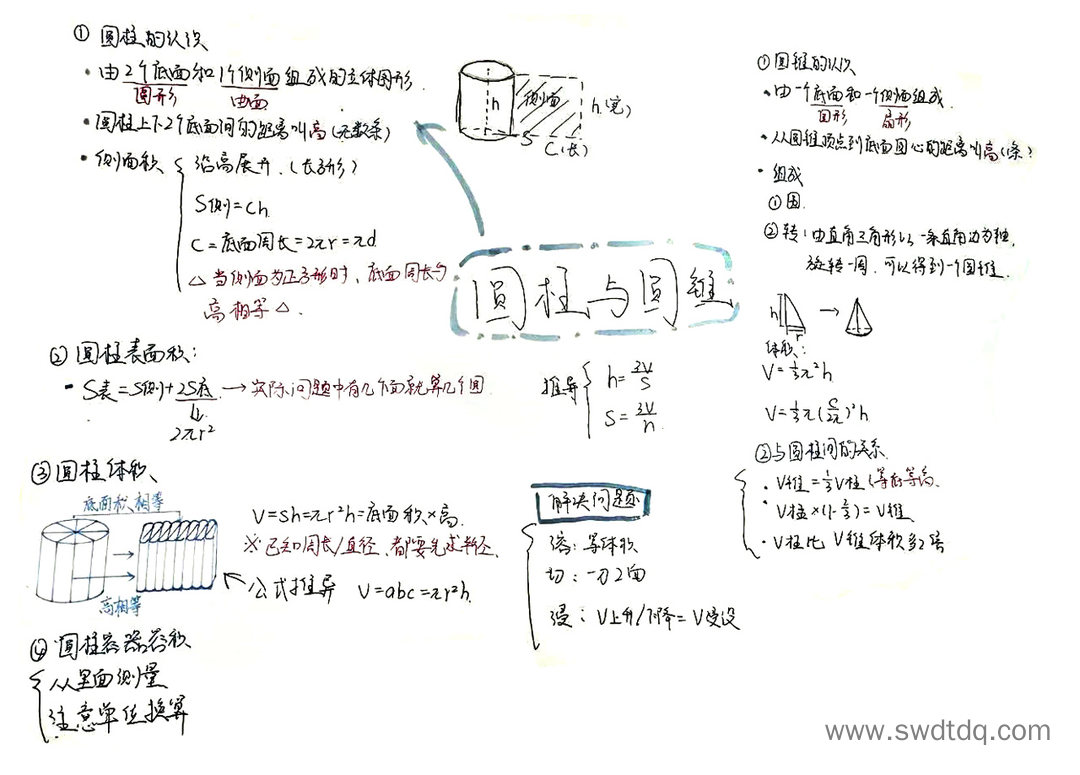 ① 圆柱的认识
· 由2个底面和1个侧面组成的立体图形.
圆形 曲面
· 圆柱上下2个底面间的距离叫高(无数条)
· 侧面积
沿高展开.(长方形)
S侧=Ch.
C=底面周长=2πr=πd
△当侧面为正方形时,底面周长与
高相等△.
h
侧面
h.(宽)
S
C(长)
圆柱与圆锥
② 圆柱表面积:
- S表=S侧+2S底 → 实际问题中有几个面就算几个面
2πr²
③ 圆柱体积
底面积相等
高相等
V=sh=πr²h=底面积×高.
※已知周长/直径,都要先求半径.
公式推导 V=abc=πr²h.
④ 圆柱容器容积
从里面测量
注意单位换算
推导
h=3V/S
S=3V/h
解决问题
溶:等体积
切:一刀2面
浸:V上升/下降=V浸没
① 圆锥的认识
· 由一个底面和一个侧面组成.
圆形 扇形
· 从圆锥顶点到底面圆心的距离叫高(1条)
· 组成
① 围.
② 转:由直角三角形以一条直角边为轴,
旋转一周.可以得到一个圆锥.
h
r
体积:
V=⅓πr²h
V=⅓π(C/2π)²h
② 与圆柱间的关系.
· V锥=⅓V柱(等底等高.
· V柱×(1-⅔)=V锥
· V柱比V锥体积多2倍
www.swdtdq.com